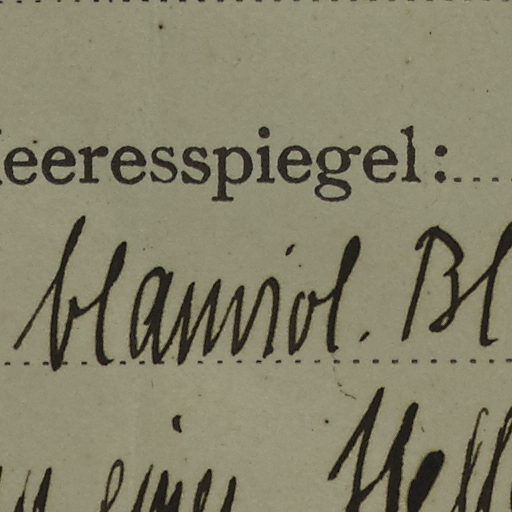 eeresspiegel:
blauviol. Bl
einer Stell